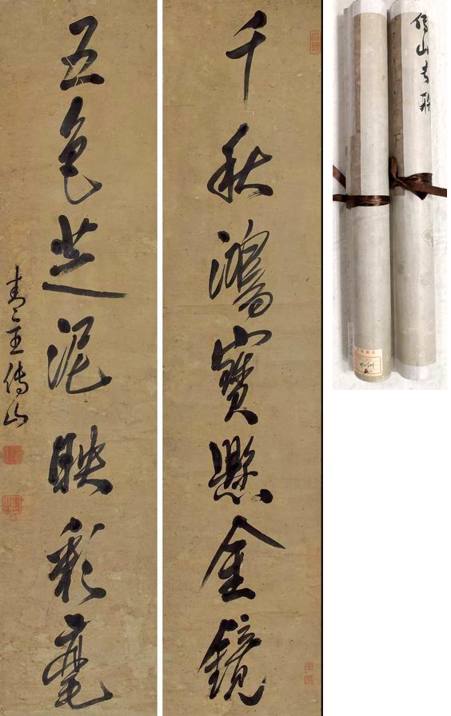 千秋鴻寶懸金鏡
五色芝泥映彩毫
青主傅山
傅山書聯